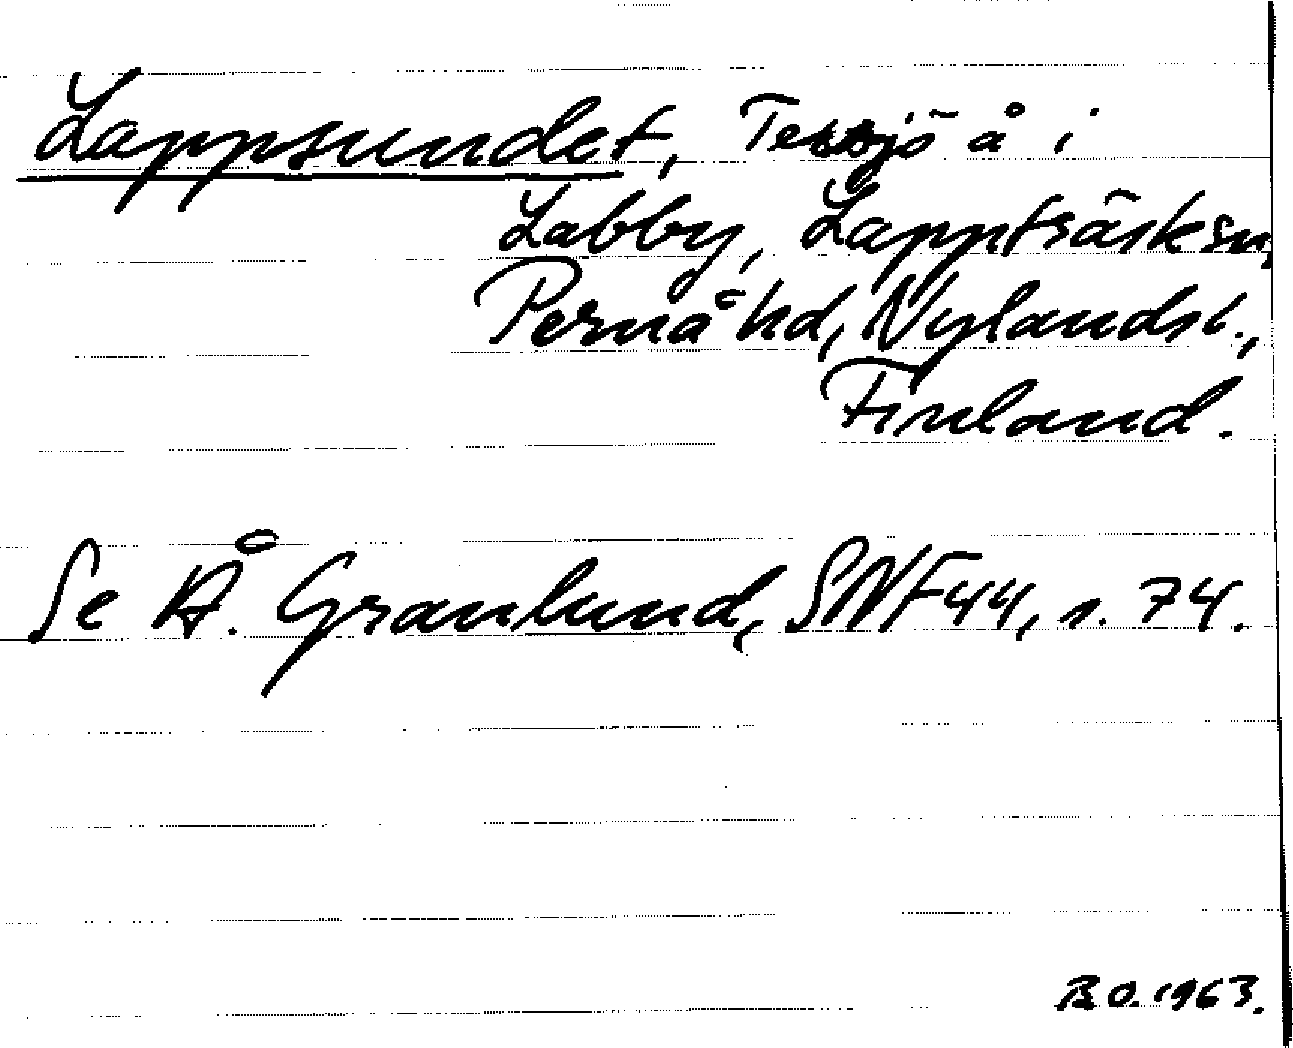 Lappsundet, Tessjö å i
Labby, Lappträsk sn,
Pernå hd, Nylands l.,
Finland.
Se Å. Granlund, SNF 44, s. 74.
B O. 1963.